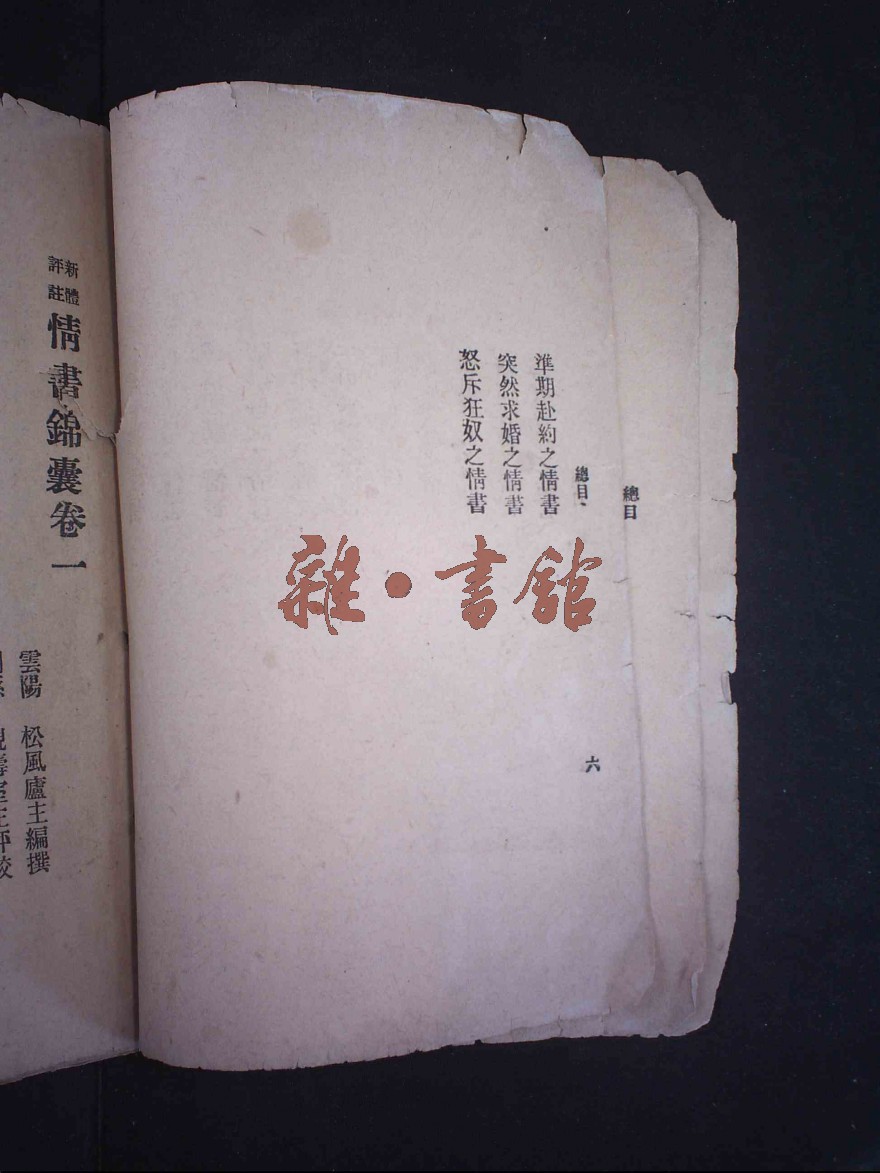 總目
總目
準期赴約之情書
突然求婚之情書
怒斥狂奴之情書
六
雜·書館
新體
評註
情書錦囊卷一
雲陽 松風廬主編撰